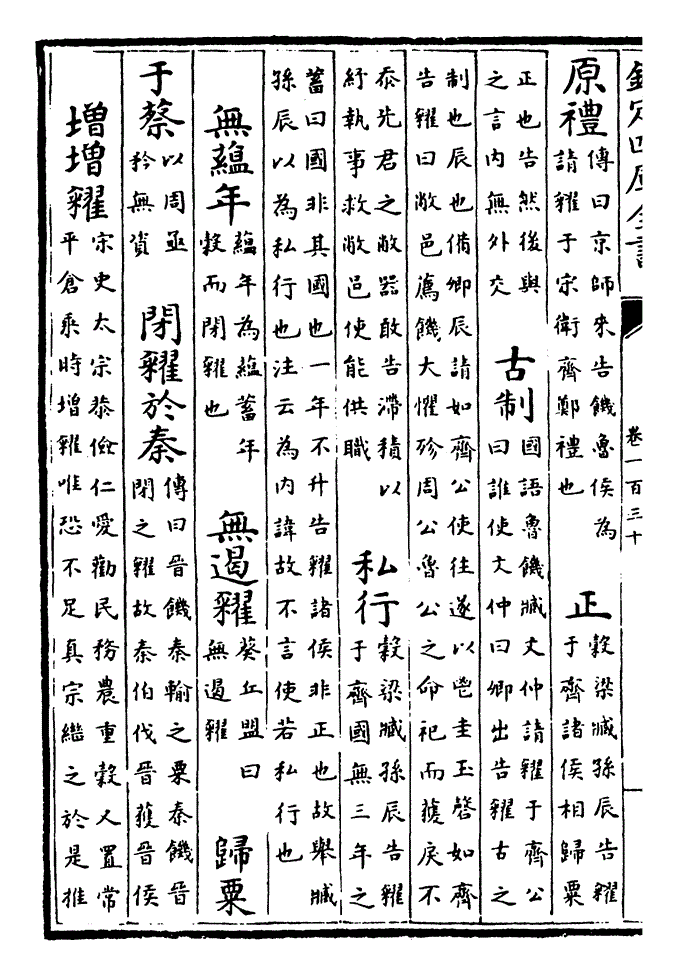 欽定四庫全書
卷一百三十
原禮
傳曰京師來告饑魯侯為
請糴于宋衛齊鄭禮也
正
穀梁臧孫辰告糴
于齊諸侯相歸粟
正也告然後與
之言内無外交
古制
國語魯饑臧文仲請糴于齊公
曰誰使文仲曰卿出告糴古之
制也辰也備卿辰請如齊公使往遂以鬯圭玉磬如齊
告糴曰敝邑薦饑大懼殄周公魯公之命祀而獲戾不
泰先君之敝器敢告滯積以
紓執事救敝邑使能供職
私行
穀梁臧孫辰告糴
于齊國無三年之
蓄曰國非其國也一年不升告糴諸侯非正也故舉臧
孫辰以為私行也注云為内諱故不言使若私行也
無藴年
藴年為藴蓄年
穀而閉糴也
無遏糴
葵丘盟曰
無遏糴
歸粟
于蔡
以周亟
矜無資
閉糴於秦
傳曰晉饑秦輸之粟秦饑晉
閉之糴故秦伯伐晉獲晉侯
増増糴
宋史太宗恭儉仁愛勸民務農重穀又置常
平倉乘時増糴唯恐不足真宗繼之於是推